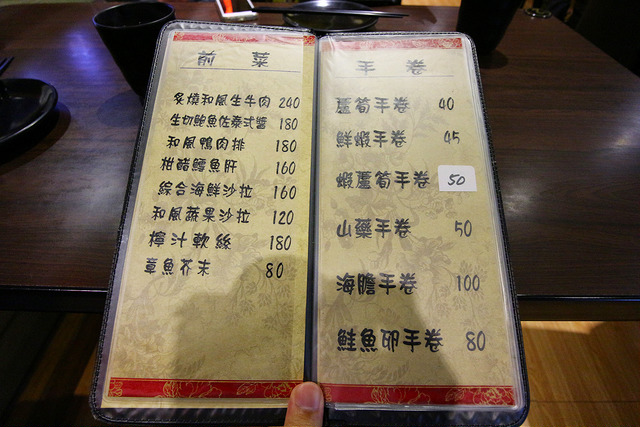 前菜
炙燒和風生牛肉 240
生切鮑魚佐泰式醬 180
和風鴨肉排 180
柑醋鱈魚肝 160
綜合海鮮沙拉 160
和風蔬果沙拉 120
檸汁軟絲 180
章魚芥末 80
手卷
蘆筍手卷 40
鮮蝦手卷 45
蝦蘆筍手卷 50
山藥手卷 50
海膽手卷 100
鮭魚卵手卷 80